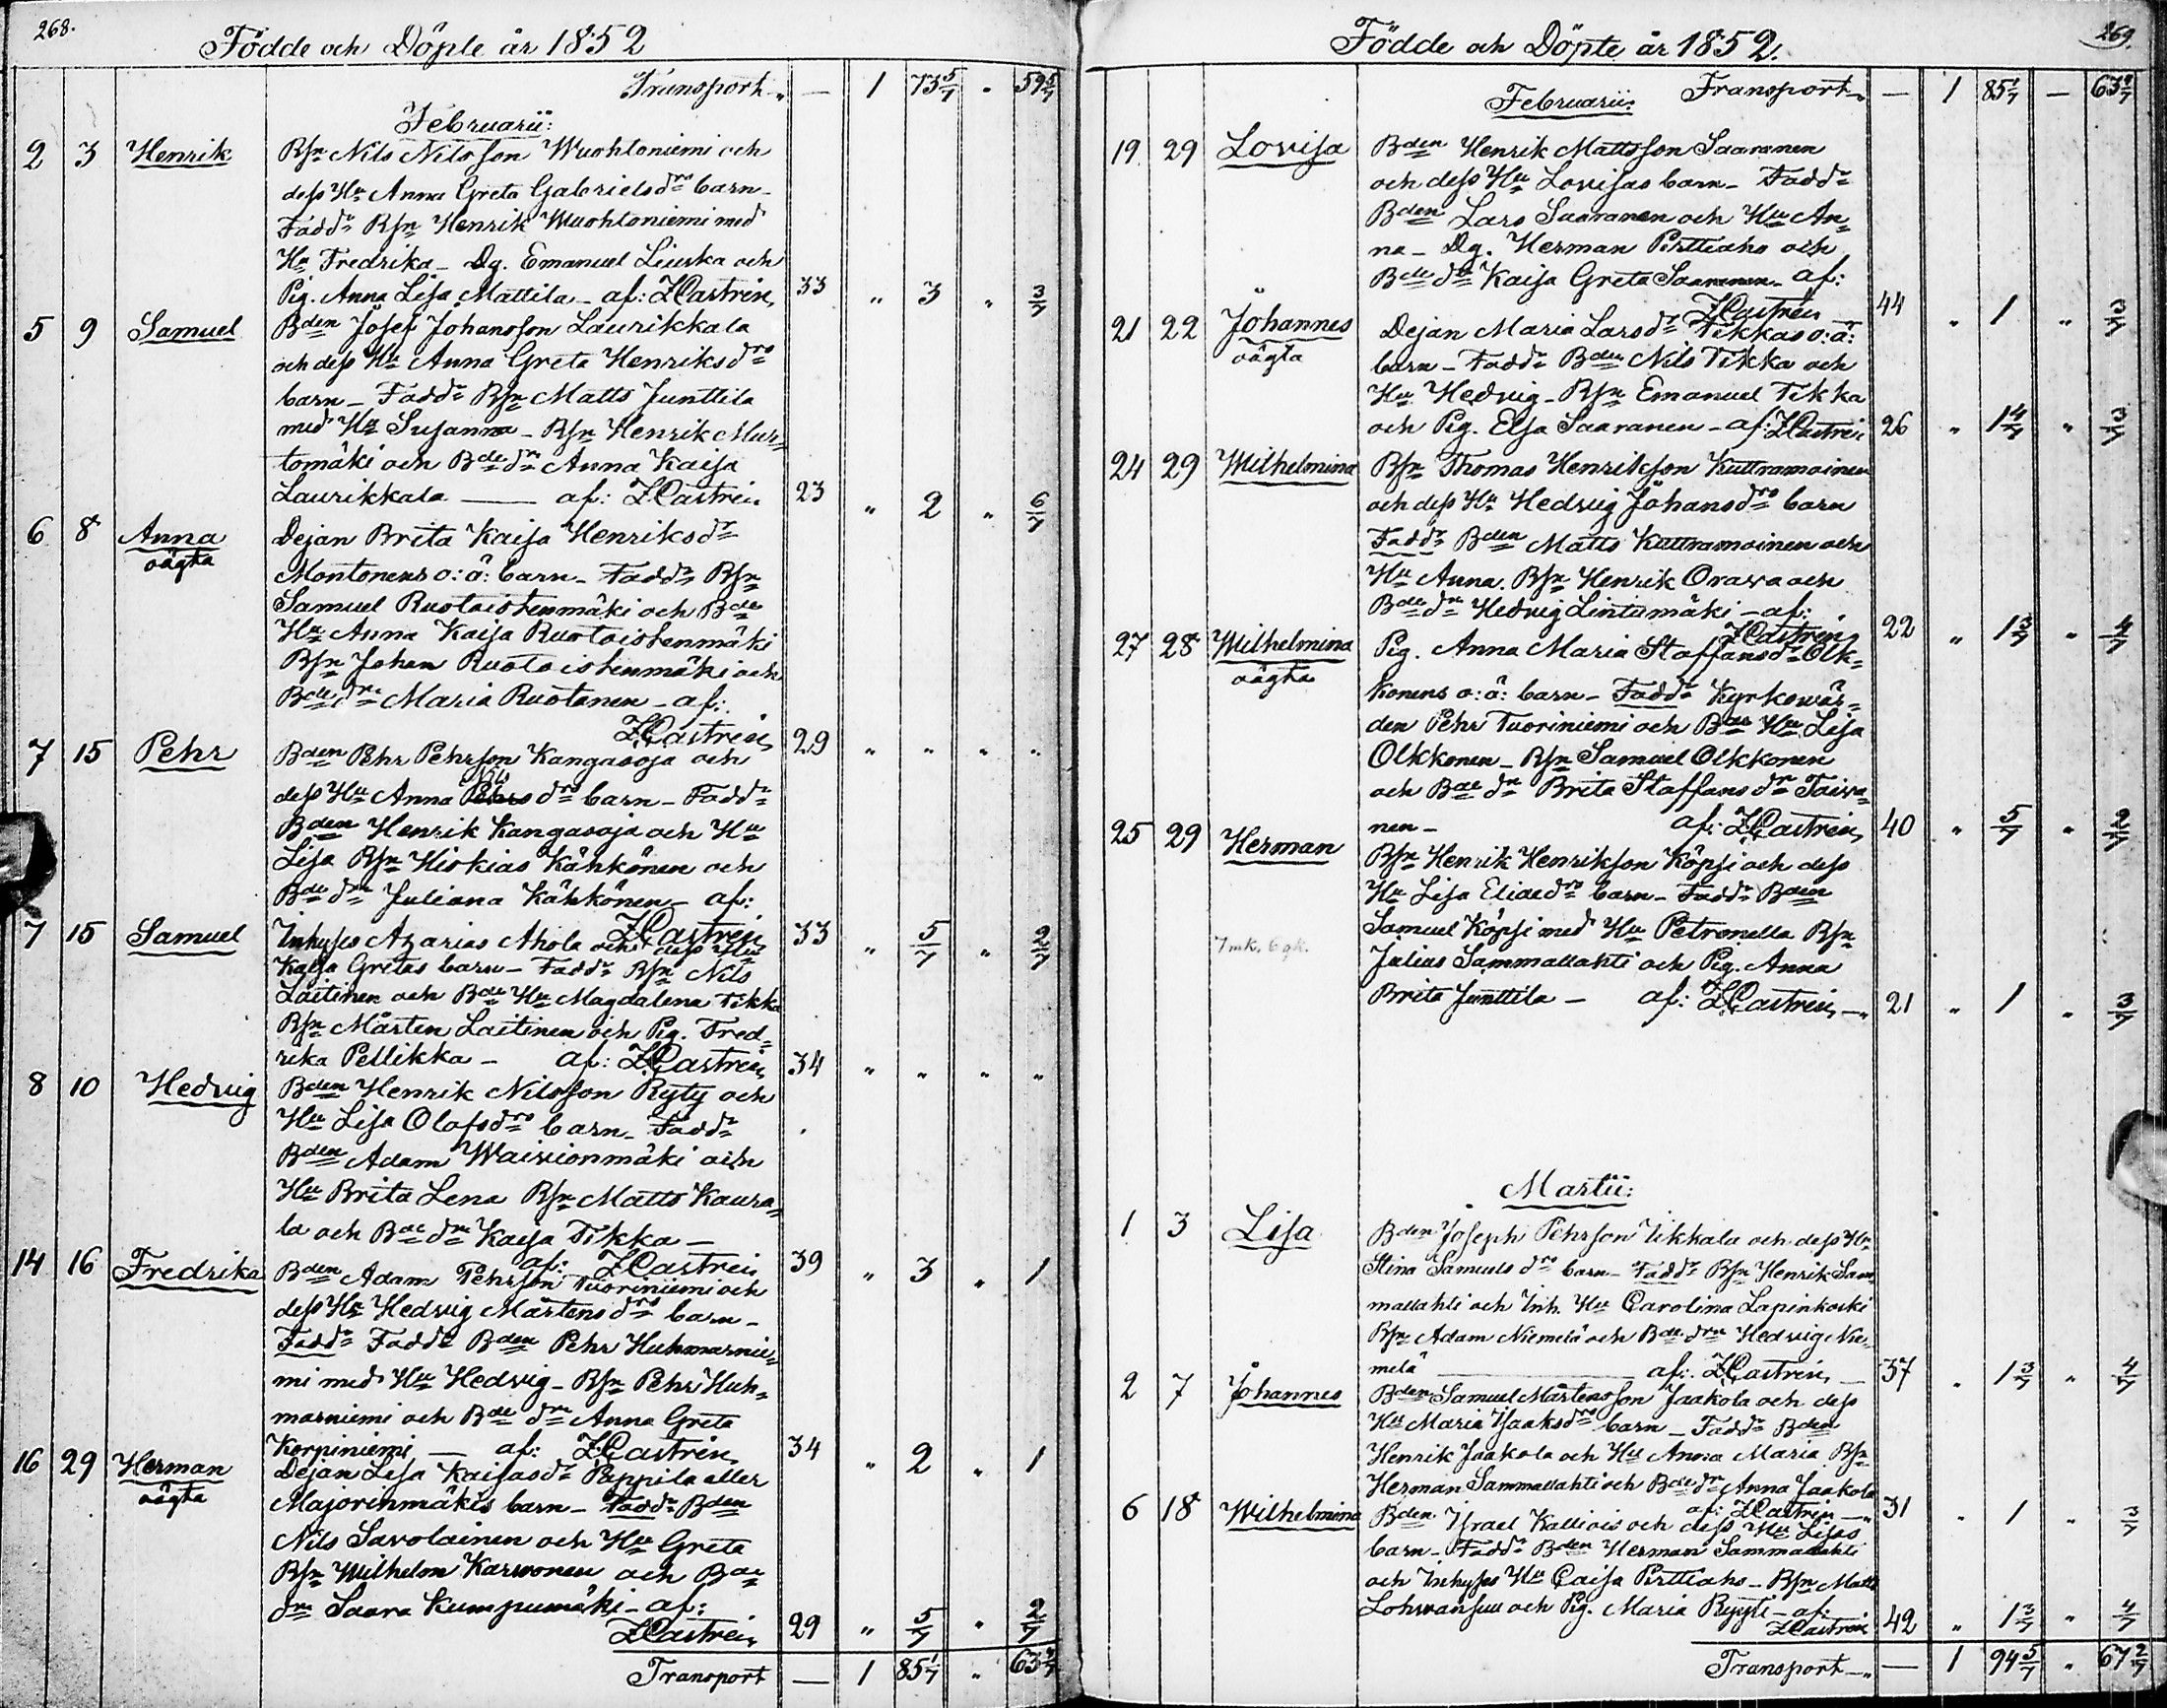 268.
Födde och Döpte år 1852
Transport — 1 73 5/7 " 59 5/7
Februarii:
2 3 Henrik Bsn Nils Nilsson Wuohtoniemi och
dess Hu Anna Greta Gabrielsdrs barn-
Fadd: Bsn Henrik Wuohtoniemi med
Hu Fredrika - Dg. Emanuel Liuska och
Pig. Anna Lisa Mattila - af: ZCastrén 33 " 3 " 3/7
5 9 Samuel Bden Josef Johansson Laurikkala
och dess Hu Anna Greta Henriksdrs
barn - Fadd: Bsn Matts Junttila
med Hu Susanna - Bsn Henrik Mur=
tomäki och Bde dr Anna Kaisa
Laurikkala — af: ZCastrén 23 " 2 " 6/7
6 8 Anna Dejan Brita Kaisa Henriksdr
oägta Montonens o: ä: barn - Fadd: Bsn
Samuel Ruotoistenmäki och Bde
Hu Anna Kaisa Ruotoistenmäki
Bsn Johan Ruotoistenmäki och
Bde dr Maria Ruotanen - af:
ZCastrén 29 " " " "
7 15 Pehr Bden Pehr Pehrsson Kangasoja och
dess Hu Anna Nils drs barn - Fadd:
Bden Henrik Kangasoja och Hu
Lisa Bsn Hiskias Kähkönen och
Bde dr Juliana Kähkönen - af:
ZCastrén 33 " 5/7 " 2/7
7 15 Samuel Inhyses Azarias Ahola och dess Hu
Kaisa Gretas barn - Fadd: Bsn Nils
Laitinen och Bde Hu Magdalena Tikka
Bsn Mårten Laitinen och Pig. Fred=
rika Pellikka - af: ZCastrén 34 " " " "
8 10 Hedvig Bden Henrik Nilsson Ryty och
Hu Lisa Olofsdrs barn - Fadd:
Bden Adam Waivionmäki och
Hu Brita Lena Bsn Matts Kaura=
la och Bde dr Kaisa Tikka —
af: ZCastrén 39 " 3 " 1
14 16 Fredrika Bden Adam Pehrsson Tuoriniemi och
dess Hu Hedvig Mårtensdrs barn -
Fadd: Fadd: Bden Pehr Huhmarnie=
mi med Hu Hedvig - Bsn Pehr Huh=
marniemi och Bde dr Anna Greta
Korpiniemi — af: ZCastrén 34 " 2 " 1
16 29 Herman Dejan Lisa Kaisasdr Pappila eller
oägta Majorinmäkis barn - Fadd: Bden
Nils Savolainen och Hu Greta
Bsn Wilhelm Karvonen och Bde
dr Saara Kumpumäki - af:
ZCastrén 29 " 5/7 " 2/7
Transport — 1 85 1/7 " 63 4/7
269.
Födde och Döpte år 1852.
Transport — 1 85 1/7 — 63 4/7
Februarii:
19 29 Lovisa Bden Henrik Mattsson Saaranen
och dess Hu Lovisas barn - Fadd:
Bden Lars Saaranen och Hu An=
na - Dg. Herman Pirttiaho och
Bde dr Kaisa Greta Saaranen - af:
ZCastrén 44 " 1 " 3/7
21 22 Johannes Dejan Maria Larsdr Tikkas o: ä:
oägta barn - Fadd: Bden Nils Tikka och
Hu Hedvig - Bsn Emanuel Tikka
och Pig. Elsa Saaranen - af: ZCastrén 26 " 1 4/7 " 3/7
24 29 Wilhelmina Bsn Thomas Henriksson Kuttramoinen
och dess Hu Hedvig Johansdrs barn
Fadd: Bden Matts Kuttramoinen och
Hu Anna. Bsn Henrik Orava och
Bde dr Hedvig Lintumäki - af:
ZCastrén 22 " 1 3/7 " 4/7
27 28 Wilhelmina Pig. Anna Maria Staffansdr Olk=
oägta konens o: ä: barn - Fadd: Kyrkowär=
den Pehr Tuoriniemi och Bde Hu Lisa
Olkkonen - Bsn Samuel Olkkonen
och Bde dr Brita Staffans dr Taiva=
nen - af: ZCastrén 40 " 5/7 " 2/7
25 29 Herman Bsn Henrik Henriksson Köpsi och dess
Hu Lisa Eliaedrs barn - Fadd: Bden
Samuel Köpsi med Hu Petronella Bsn
7 mk. 6 gk. Julius Sammallahti och Pig. Anna
Brita Junttila - af: ZCastrén 21 " 1 " 3/7
Martii:
1 3 Lisa Bden Joseph Pehrsson Ukkala och dess Hu
Stina Samuels drs barn - Fadd: Bsn Henrik Sam=
mallahti och Inh. Hu Carolina Lapinkoski
Bsn Adam Niemelä och Bde dr Hedvig Nie=
melä — af: ZCastrén 37 " 1 3/7 " 4/7
2 7 Johannes Bden Samuel Mårtensson Jaakola och dess
Hu Maria Isaksdrs barn - Fadd: Bden
Henrik Jaakola och Hu Anna Maria Bsn
Herman Sammallahti och Bde dr Anna Jaakola
af: ZCastrén 31 " 1 " 3/7
6 18 Wilhelmina Bden Israel Kalliois och dess Hu Lisas
barn - Fadd: Bden Herman Sammallahti
och Inhyses Hu Caisa Pirttiaho - Bsn Matts
Lohvansuu och Pig. Maria Ryyti - af:
ZCastrén 42 " 1 3/7 " 4/7
Transport — 1 94 5/7 " 67 2/7